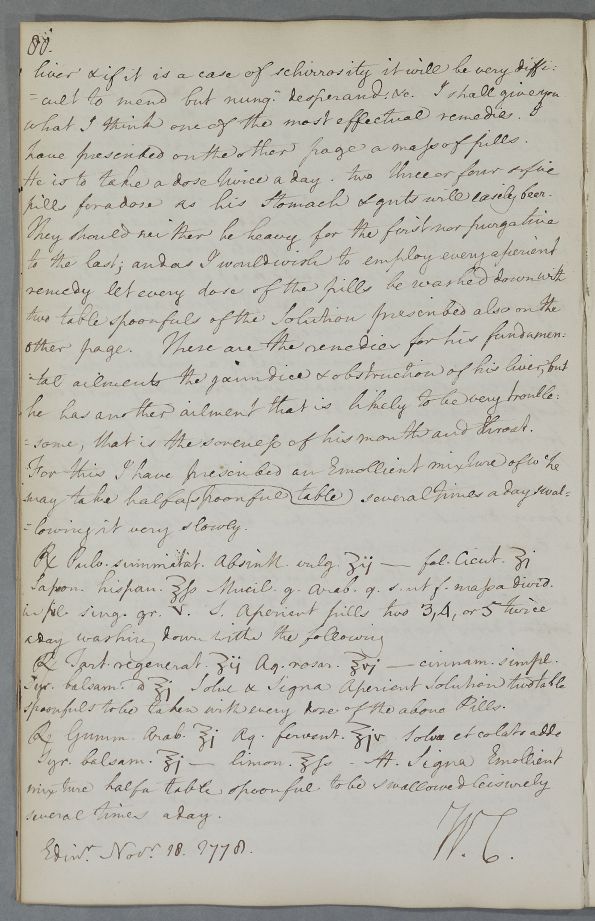 80.
liver & if it is a case of schirrosity it will be very diffi:
=cult to mend but nunq: desperand: &c. I shall give you
what I think one of the most effectual remedies. I
have prescribed on the other page a mass of pills.
He is to take a dose twice a day. two three or four or five
pills for a dose as his stomach & guts will easily bear.
They should neither be heavy for the first nor purgative
to the last; and as I would wish to employ every aperient
remedy let every dose of the pills be washed down with
two table spoonfuls of the Solution prescribed also on the
other page. These are the remedies for his fundamen:
=tal ailments the jaundice & obstruction of his liver, but
he has another ailment that is likely to be very trouble:
=some, that is the soreness of his mouth and throat.
For this I have prescribed an Emollient mixture of wc he
may take half a (spoonful (table) several times a day swal=
=lowing it very slowly.
Rx Pulv. summitat. absinth. vulg. ʒij — fol. Cicut. ʒj
Sapon. hispan. ʒss Mucil. g. Arab. q. s. ut f. massa divid.
in pil. sing. gr. v. S. Aperient pills two 3, 4, or 5 twice
a day washing down with the following
Rx Tart. regenerat. ʒij Aq. rosar. ℥vj — cinnam. simpl.
Syr. balsam. a ℥j Solve & Signa Aperient Solution two table
spoonfuls to be taken with every dose of the above Pills.
Rx Gumm. Arab. ℥j Aq. fervent. ℥iv Solve et colat. adde
Syr. balsam. ℥j — limon. ℥ss - M. Signa Emollient
mixture half a table spoonful to be swallowed leisurely
several times a day.
Edinr. Novr. 18. 1778.
W. C.